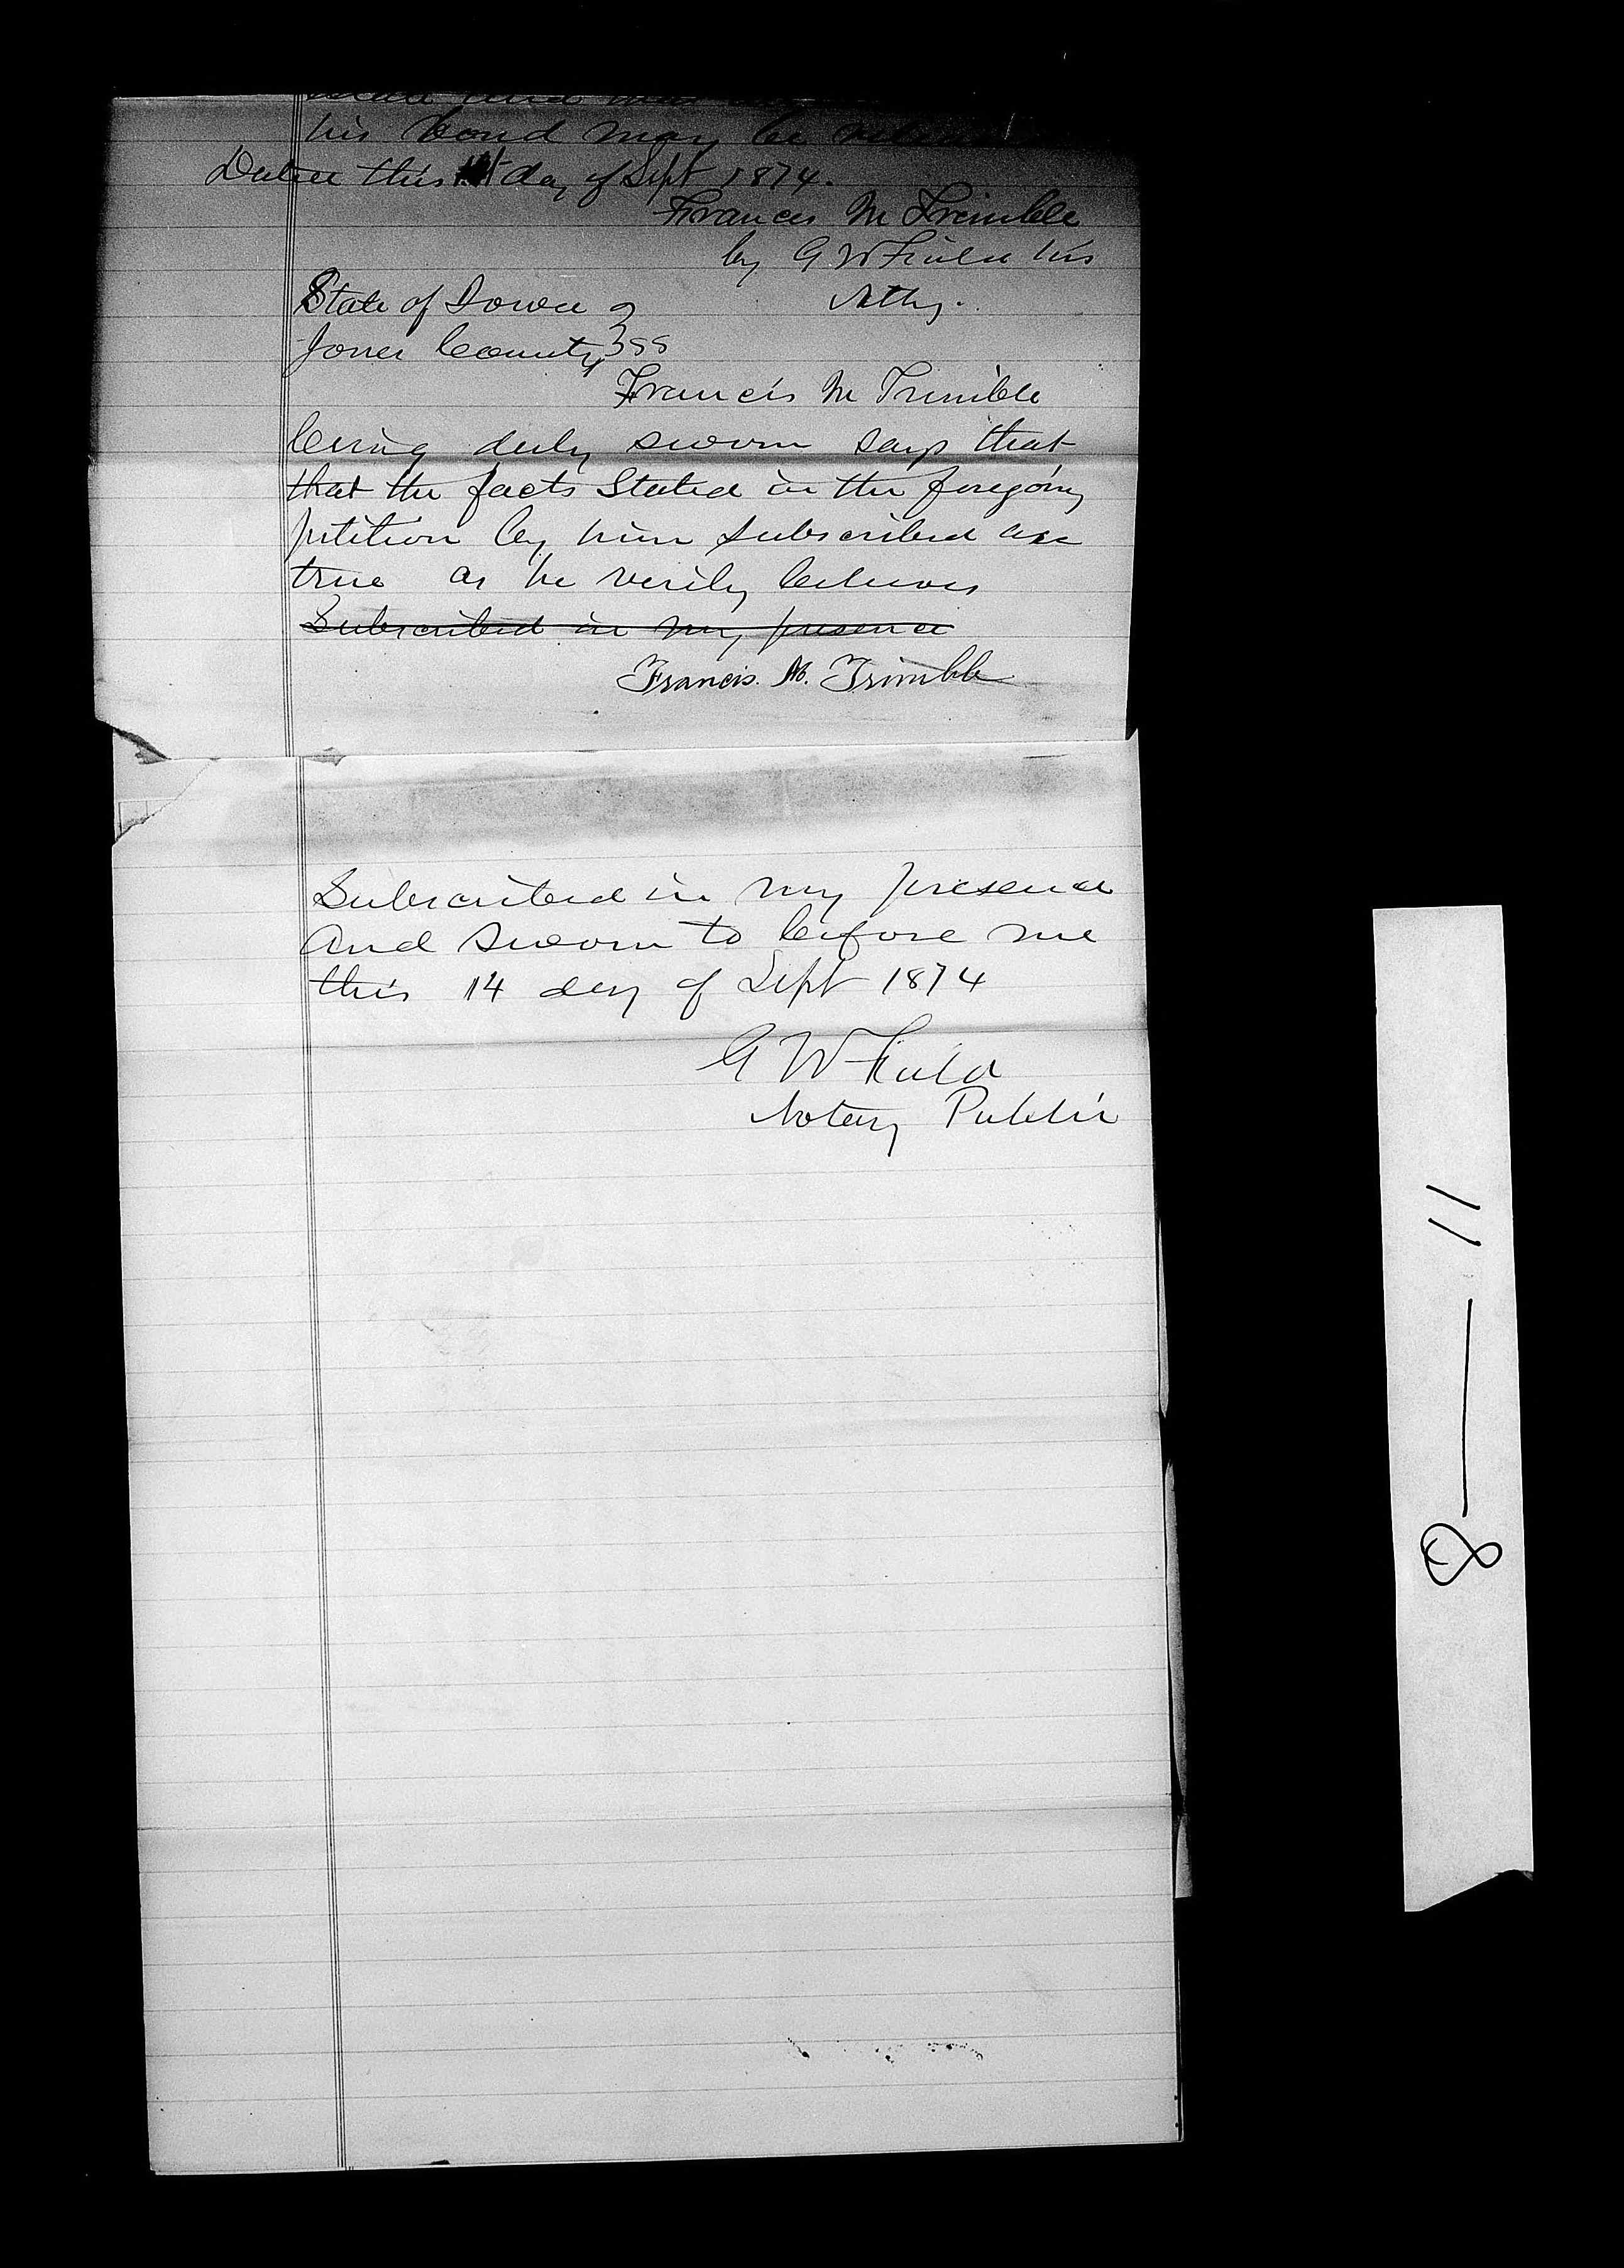 his bond may be
Dated this day of Sept 1874.
Francis M Trimble
by G W Field his
Atty.
State of Iowa }
Jones County } ss
Francis M Trimble
being duly sworn says that
that the facts Stated in the foregoing
petition by him subscribed are
true as he verily believes
Subscribed in my presence
Francis. M. Trimble
Subscribed in my presence
and sworn to before me
this 14 day of Sept 1874
G W Field
Notary Public
8 — 11